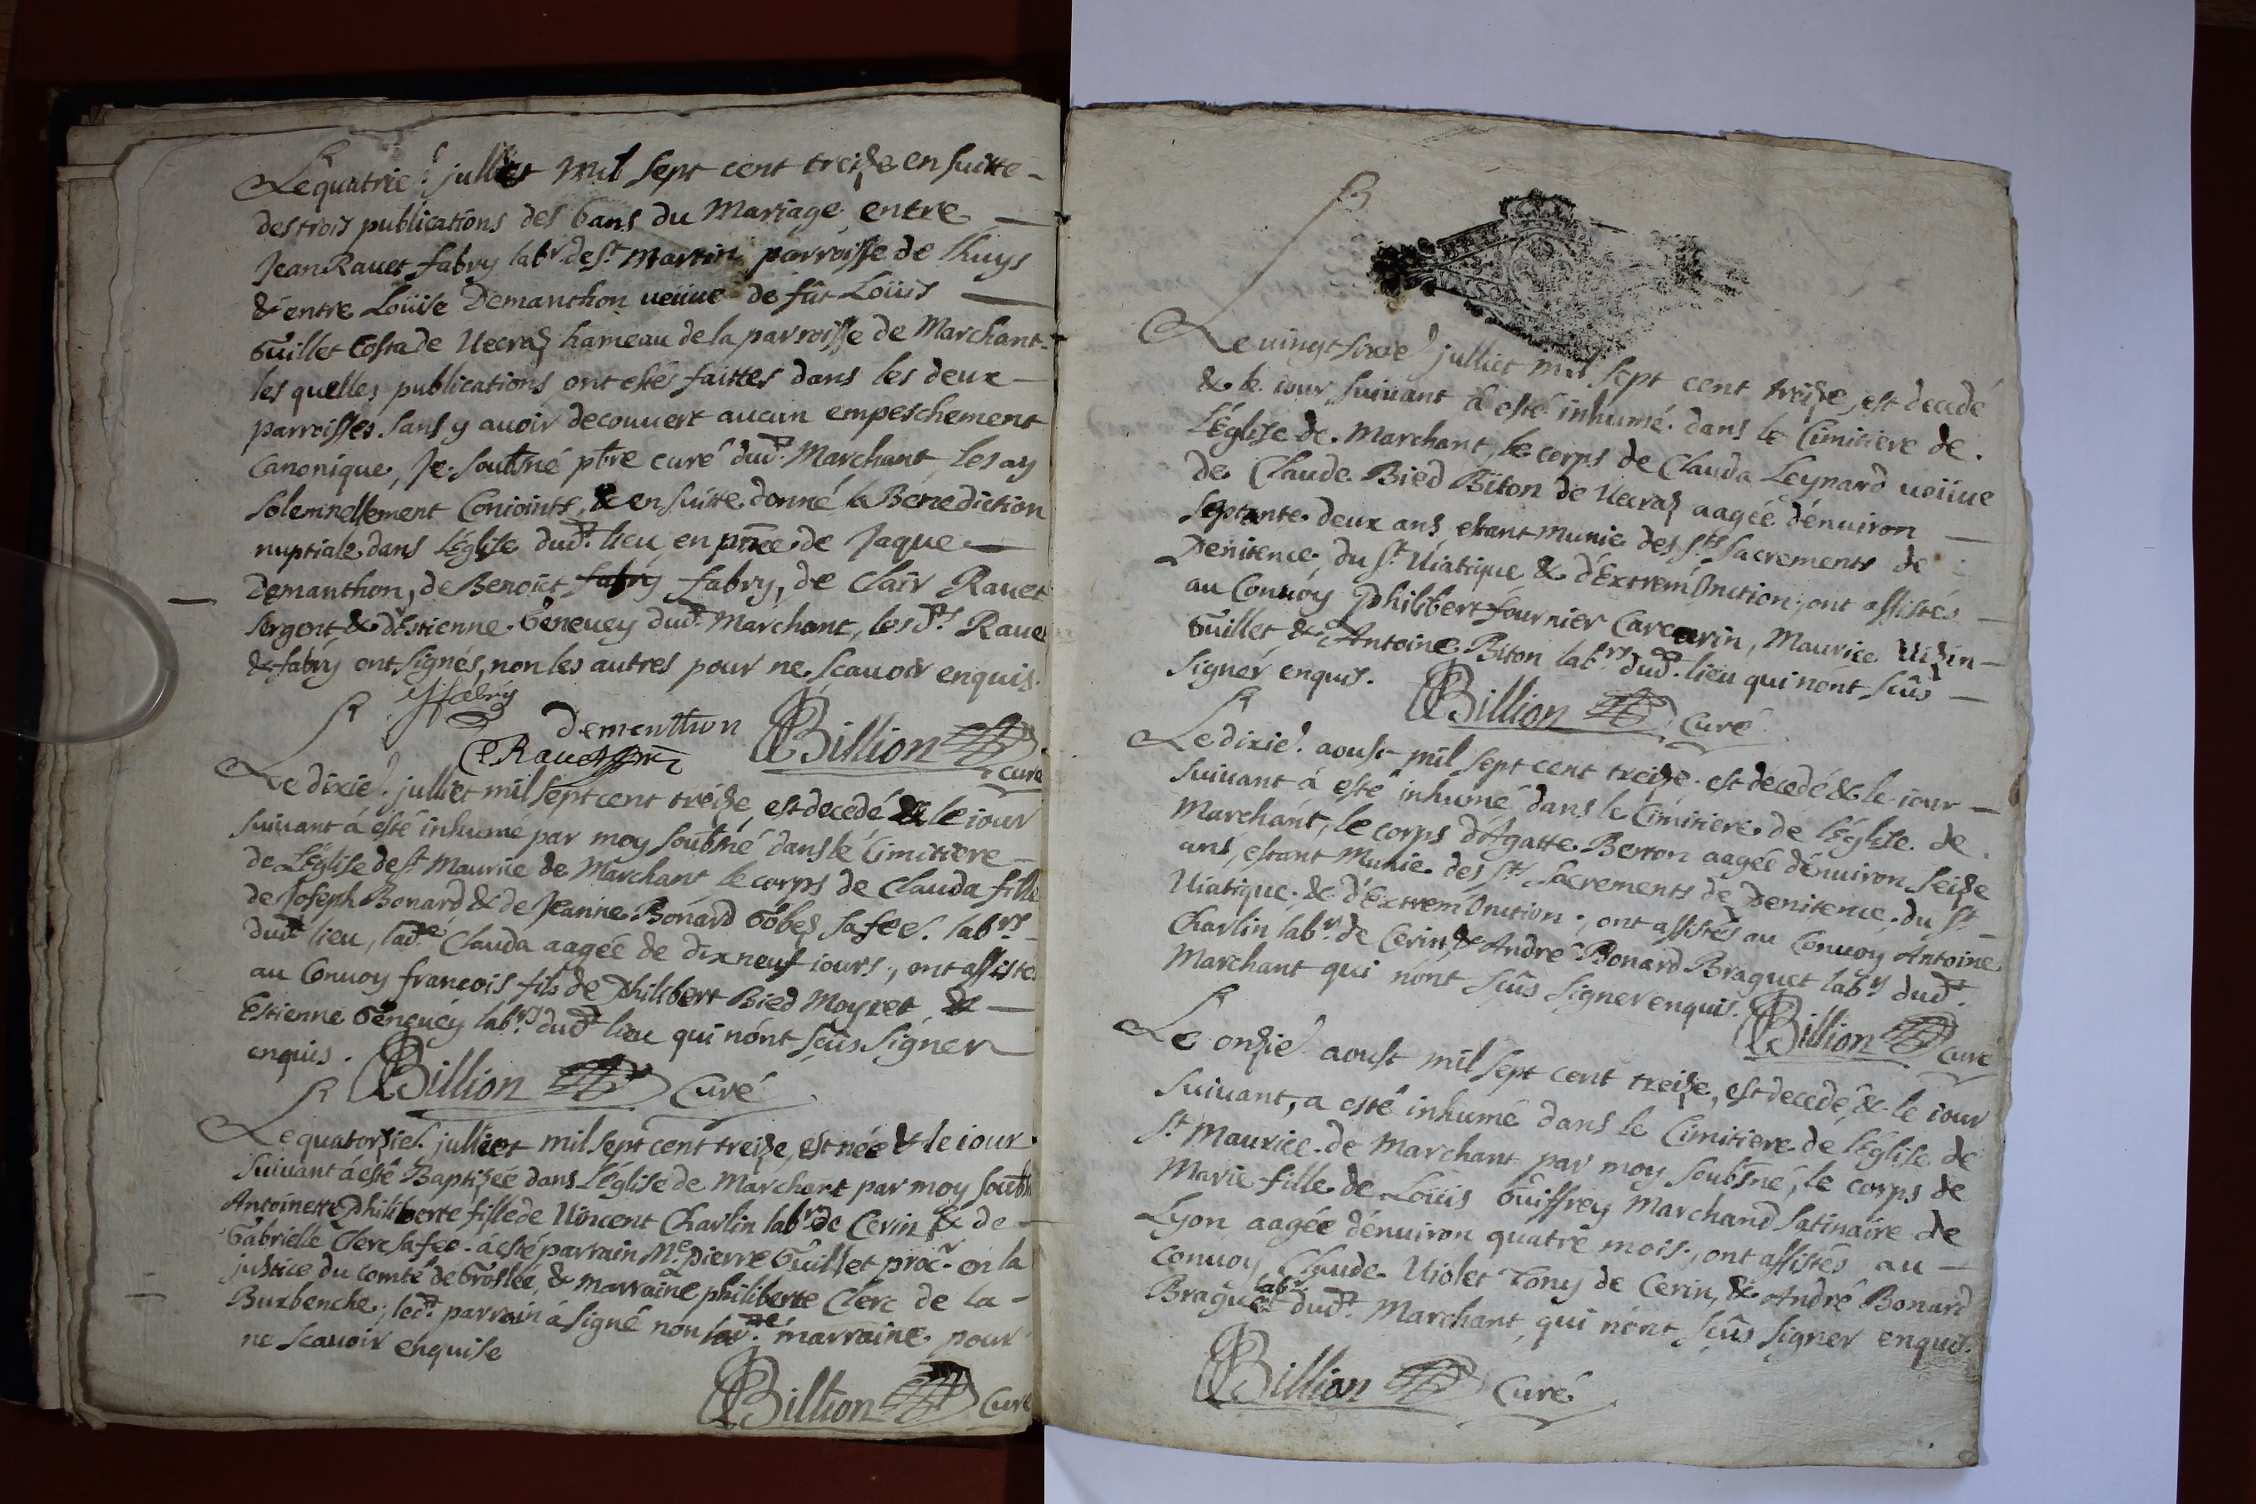 Le quatrie.e julliet mil sept cent treize en suitte
des trois publications des bans du Mariage entre
Jean Rauet fabry labr de st Martin parroisse de lhuys
& entre Loüise Demanthon ueüue de fût Loüis
Guillet Costa de Uecraz hameau de la parroisse de Marchant
les quelles publications ont estés faittes dans les deux
parroisses sans y auoir decouuert aucun empeschement
Canonique, Je soubsné pbre curé dud.t Marchant, les ay
solemnellement Conioints, & en suitte donné la Bénédiction
nuptiale dans l'église dud.t lieu en pñce de Jaque
Demanthon, de Benoict fabry fabry, de Clair Rauet
sergent & d'Estienne Géneuey dud.t Marchant, les d.ts Raue
& fabry ont signés, non les autres pour ne scauoir enquis.
fabry
Dementhon
C Rauet
Billion curé
Le dixie.e julliet mil sept cent treize, est decedé & le iour
suiuant á esté inhumé par moy soubsné dans le Cimitiere
de L'Eglise de st Maurice de Marchant le corps de Clauda fille
de Joseph Bonard & de Jeanne Bonard Gobez sa fee. labrs
dud.t lieu, lad.e Clauda aagée de dix neuf iours, ont assiste
au Conuoy francois fils de Philibert Bied Moyret &
Estienne Géneuéy labrs dud.t lieu qui nónt scûs signer
enquis. Billion Curé
Le quatorzie.e julliet mil sept cent treize, est née & le iour
suiuant á esté Baptizée dans L'église de Marchant par moy soubs
Antoinette Philiberte fille de Uincent Charlin labr de Cerin & de
Gabrielle Clerc sa fee. á esté parrain Me. pierre Guillet procr. en la
justice du comté de Groslée, & marraine philiberte Clerc de la
Burbenche, led.t parrain á signé non lad.e marraine pour
ne scauoir enquise
Billion Curé
Le uingt sixie.e julliet mil sept cent treize, est decedé
& le iour suiuant á esté inhumé dans le Cimitiere de
L'église de Marchant, le corps de Clauda Leynard ueüue
de Claude Bied Biton de Uecraz aagée d'énuiron
septante deux ans, estant munie des sts sacrements de
Penitence, du st Uiatique & d'Extrem'Onction, ont assistés
au Conuoy Philibert fournier Carcarin, Maurice Uizin
Guillet, & Antoine Biton labrs dud.t lieu qui nónt scûs
signer enquis. Billion Curé
Le dixie.e aoust mil sept cent treize est decedé & le iour
suiuant á esté inhumé dans le Cimitiere de l'église de
Marchant, le corps d'Agatte Berton aagée d'énuiron seize
ans, estant munie des sts sacrements de Penitence, du st
Uiatique & d'Extrem'Onction, ont assistés au Conuoy Antoine
Charlin labr. de Cerin, & André Bonard Braguet labr dud.t
Marchant qui nónt scûs signer enquis. Billion Curé
Le onzie.e aoust mil sept cent treize, est decedé & le iour
suiuant, a esté inhumé dans le Cimitiere de l'église de
st Maurice de Marchant par moy soubsné, le corps de
Marie fille de Loüis Guiffrey Marchand satinaire de
Lyon aagée d'énuiron quatre mois, ont assistés au
conuoy Claude Uiolet Tony de Cerin, & André Bonard
Braguet labr dud.t Marchant, qui nónt scûs signer enquis.
Billion Curé